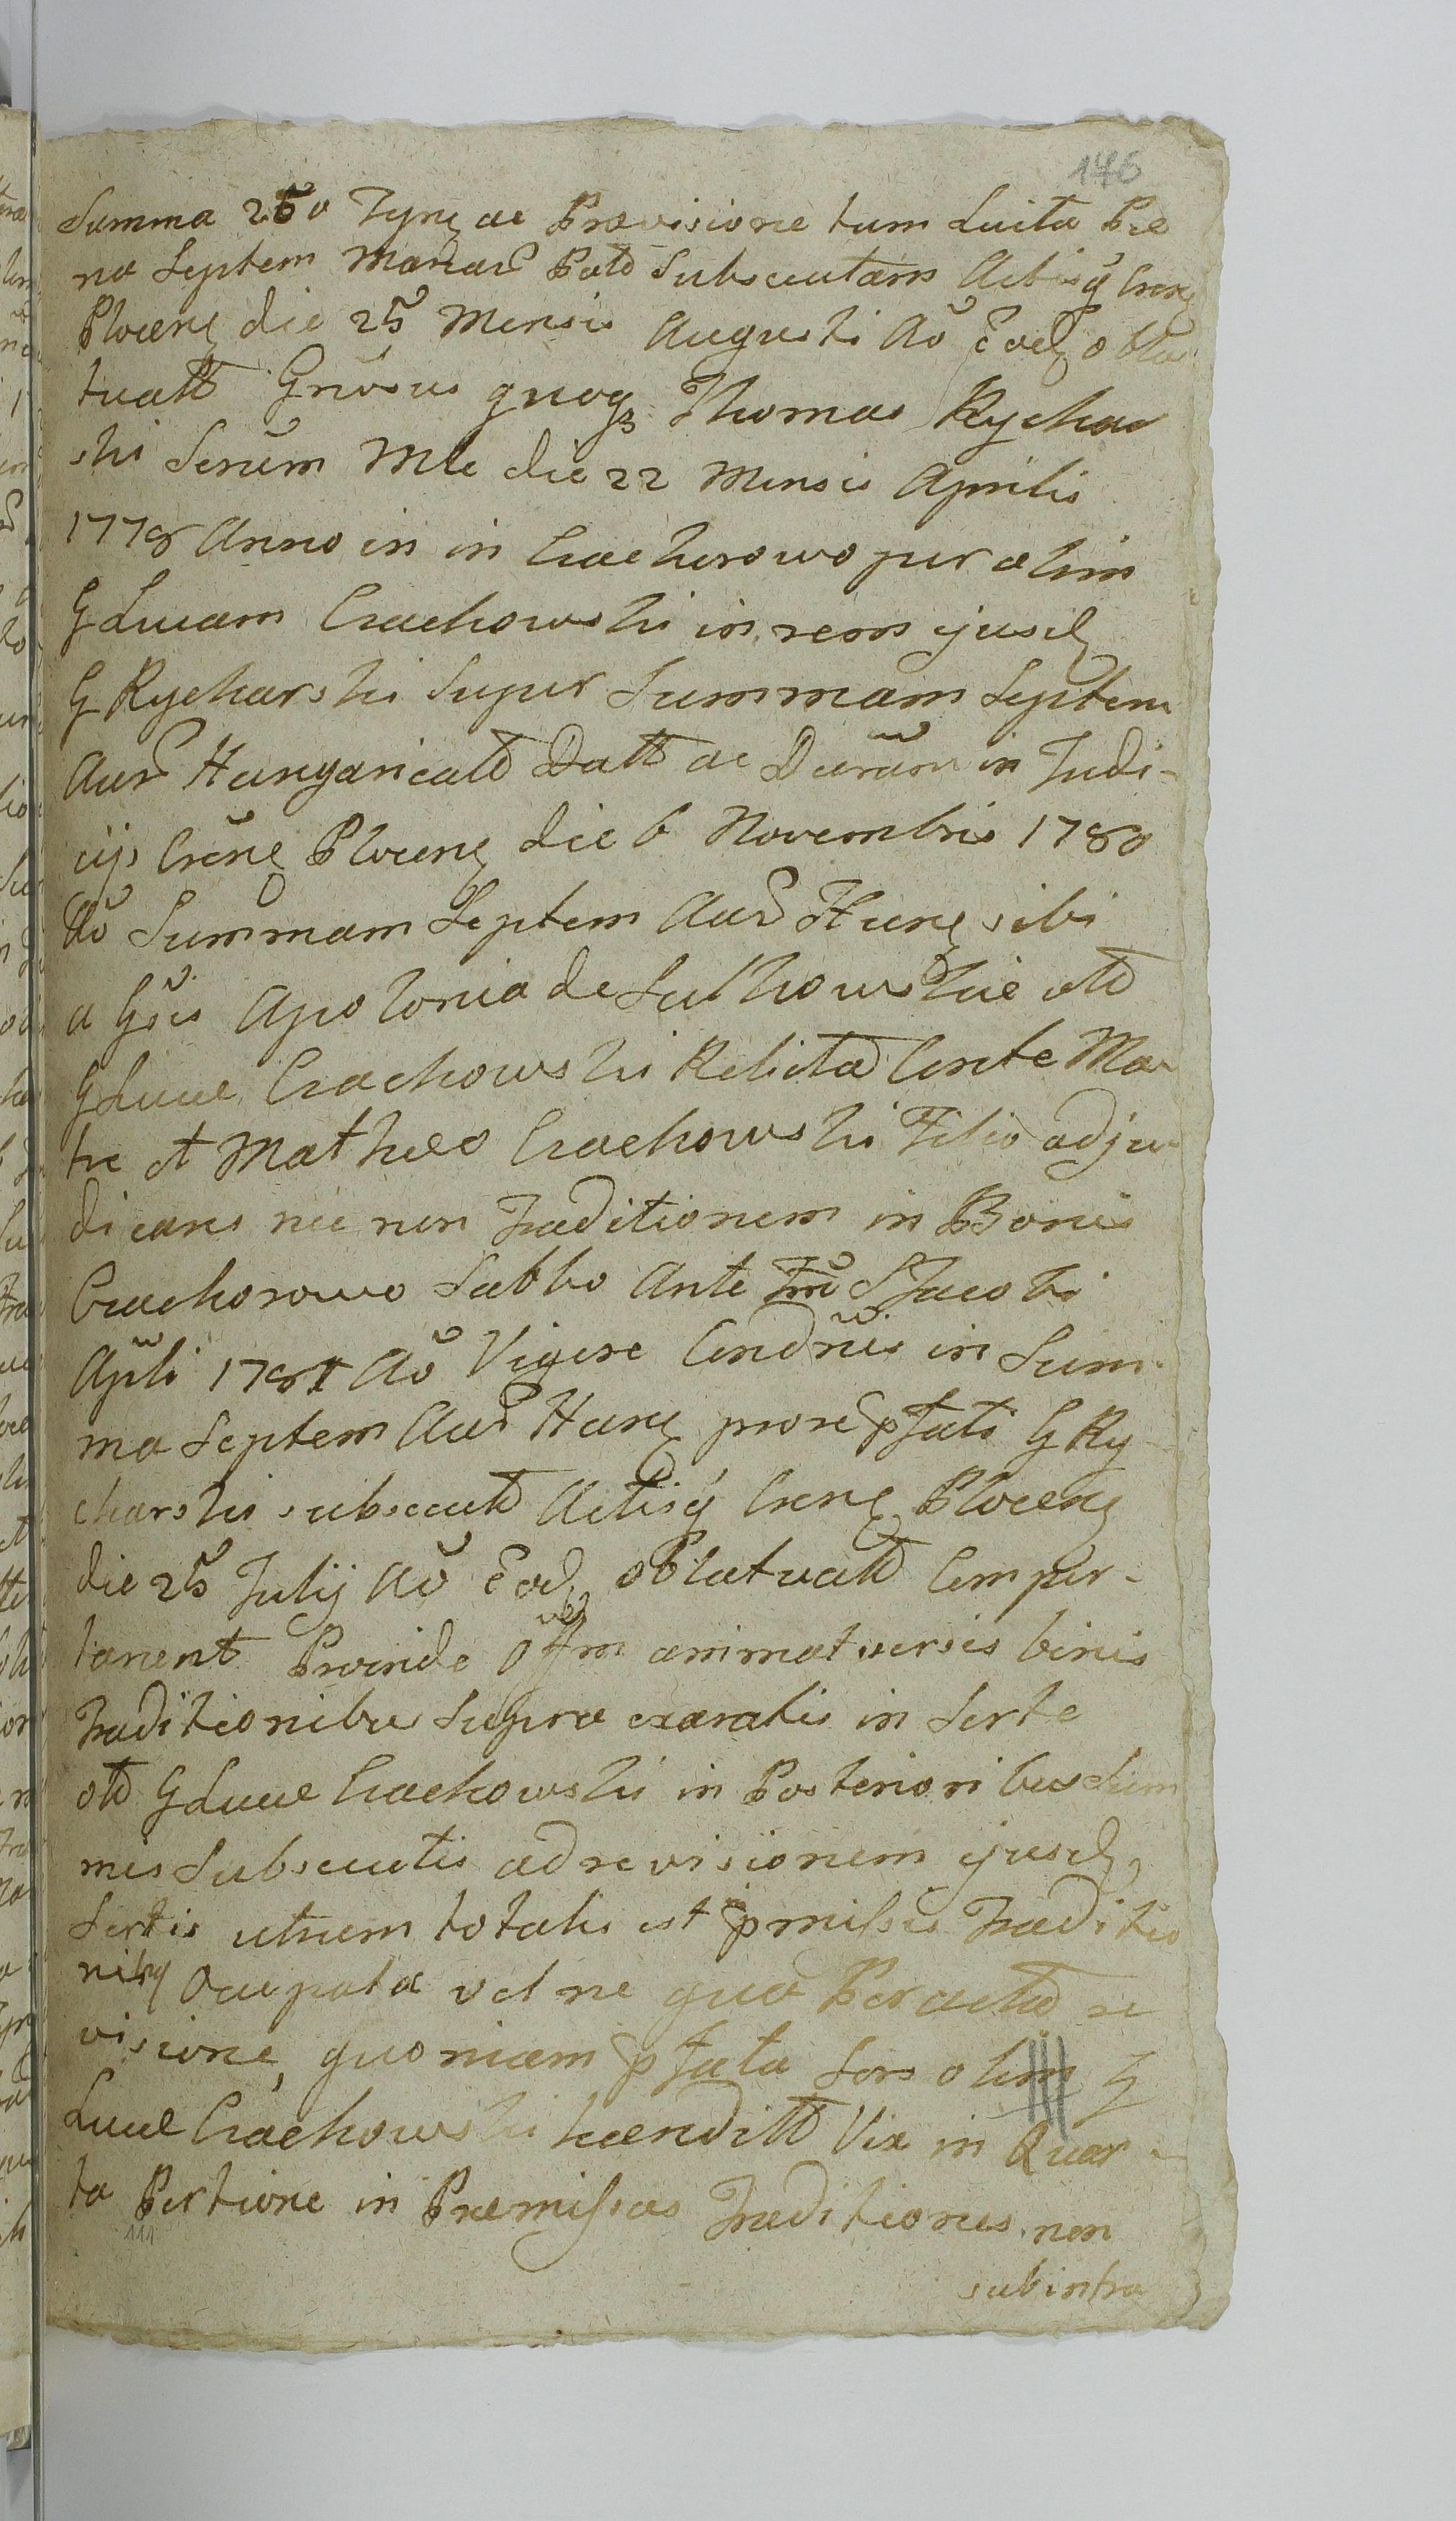 176
Summa 250 Tynf ac Provisione tum Luita Pæ
na Septem Marcar Patt Subsecutam Actisq Crens
Plocens die 25 Mensis Augusti Aō Eod obla
tuatt Gnōsus quoqz Thomas Rychar
ski Scrum Mle die 22 Mensis Aprilis
1778 Anno in in Ciachorowo per olim
G Lucam Ciachowski in rem ejusd
G Rycharski Super Summam Septem
Aur Hungaricatt Datt ac in Judi-
cijs Crens Plocens die 6 Novembris 1780
Aō Summam Septem Aur Hung sibi
a Gsis Apolonia de Sulkowskie ott
G Lucæ Ciachowski Relicta Conte Ma
tre et Matheo Ciachowski Filio adju
dicans nec non Traditionem in Bonis
Ciachorowo Sabbo Ante Fm S Jacobi
Apli 1781 Aō Vigore Condnis in Sum
ma Septem Aur Hung pro re pfati G Ry
charski subsecutt Actisq Crens Plocens
die 25 Julij Aō Eod oblatuatt Compor-
tarent Proinde Offm animatversis binis
Traditionibus Supra exaratis in Sorte
ott G Lucæ Ciachowski in Posterioribus dum
mis Subsecutis ad revisionem ejusd
Sortis utrum totalis est pmissis Traditio
nibq Occupata vel ne qua Peractta re
visione, quoniam pfata Sors olim G
Lucæ Ciachowski hæreditt Vix in Quar-
ta Portione in Præmissas Traditiones non
subintra